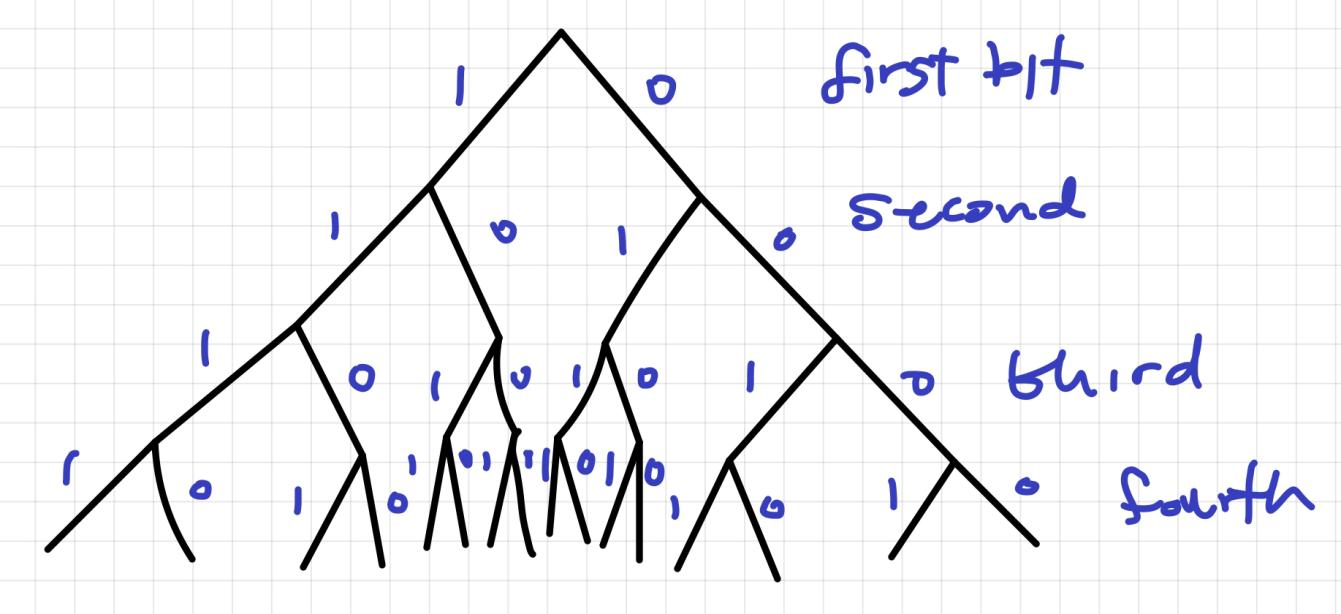 1 0 first bit
1 0 1 0 second
1 0 1 0 1 0 1 0 third
1 0 1 0 1 0 1 1 1 0 1 0 1 0 1 0 fourth